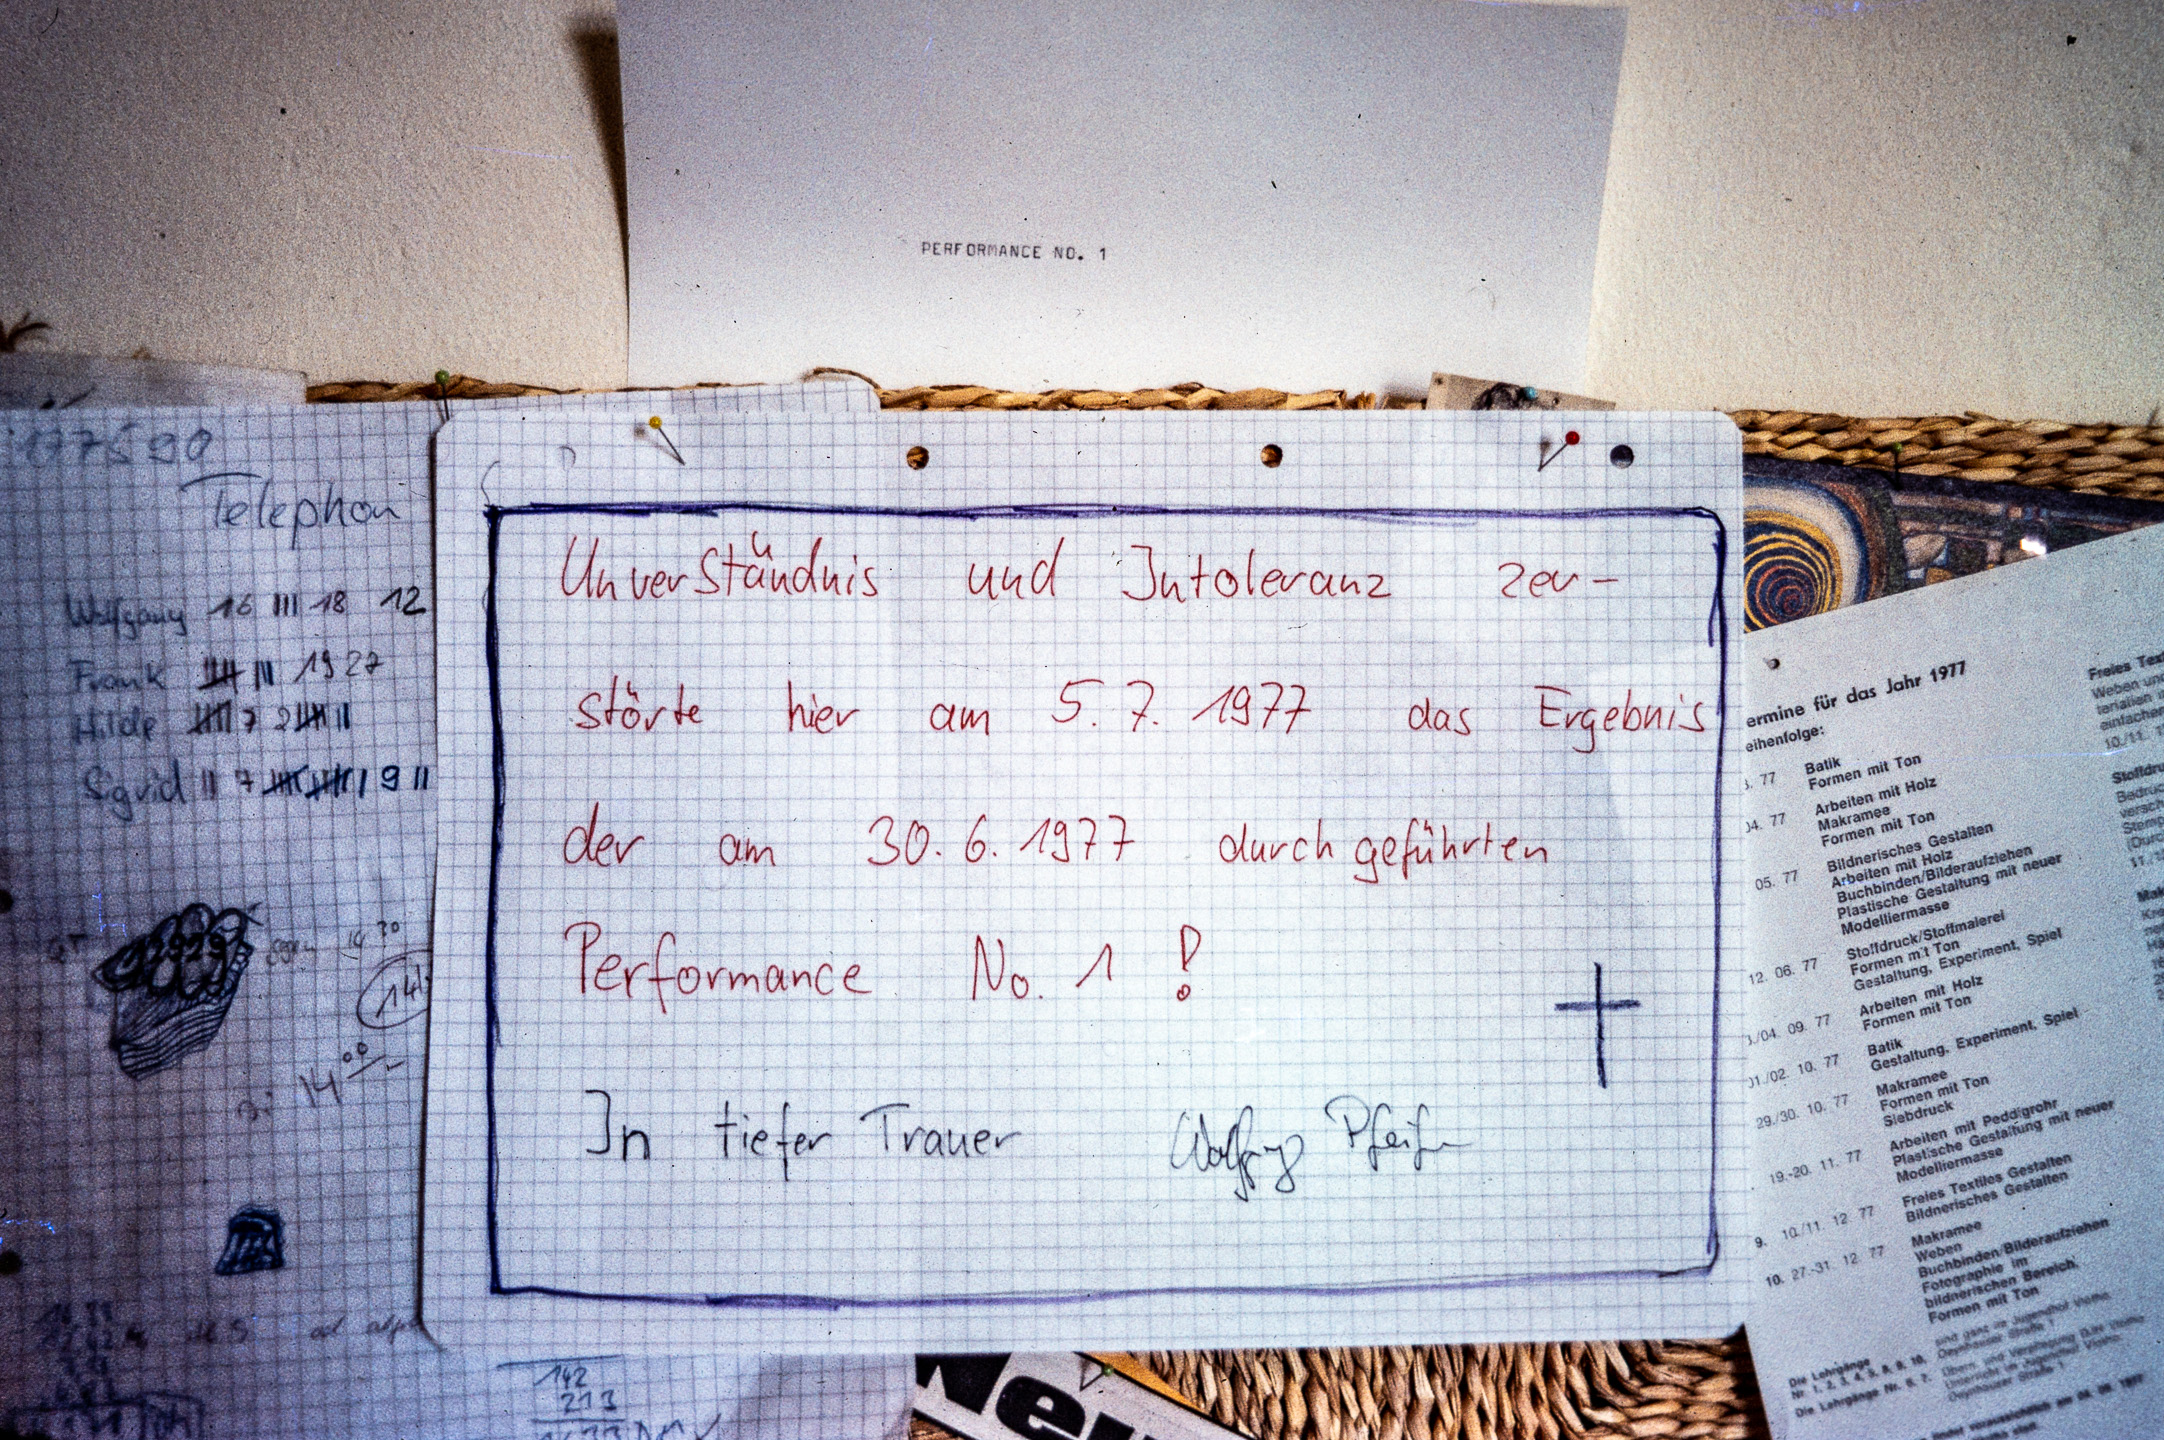 PERFORMANCE NO. 1
177590
Telephon
Wolfgang 16 III 18 12
Frank 19 27
Hilde 7 2
Sigrid II 7 9 II
14
14 00
142
213
Unverständnis und Intoleranz zer-
störte hier am 5. 7. 1977 das Ergebnis
der am 30. 6. 1977 durchgeführten
Performance No. 1 !
In tiefer Trauer Wolfgang Pfeifer
Neu
ermine für das Jahr 1977
eihenfolge:
77 Batik
Formen mit Ton
04. 77 Arbeiten mit Holz
Makramee
Formen mit Ton
05. 77 Bildnerisches Gestalten
Arbeiten mit Holz
Buchbinden/Bilderaufziehen
Plastische Gestaltung mit neuer
Modelliermasse
12. 06. 77 Stoffdruck/Stoffmalerei
Formen mit Ton
Gestaltung, Experiment, Spiel
./04. 09. 77 Arbeiten mit Holz
Formen mit Ton
01./02. 10. 77 Batik
Gestaltung, Experiment, Spiel
29./30. 10. 77 Makramee
Formen mit Ton
Siebdruck
19.-20. 11. 77 Arbeiten mit Peddigrohr
Plastische Gestaltung mit neuer
Modelliermasse
9. 10./11. 12 77 Freies Textiles Gestalten
Bildnerisches Gestalten
10. 27.-31. 12 77 Makramee
Weben
Buchbinden/Bilderaufziehen
Fotographie im
bildnerischen Bereich.
Formen mit Ton
Die Lehrgänge
Nr. 1, 2, 3, 4, 5, 8, 9, 10.
Die Lehrgänge Nr. 6, 7.
Freies Tex
Weben und
terialien
einfacher
10./11.
Stoffdru
Bedruc